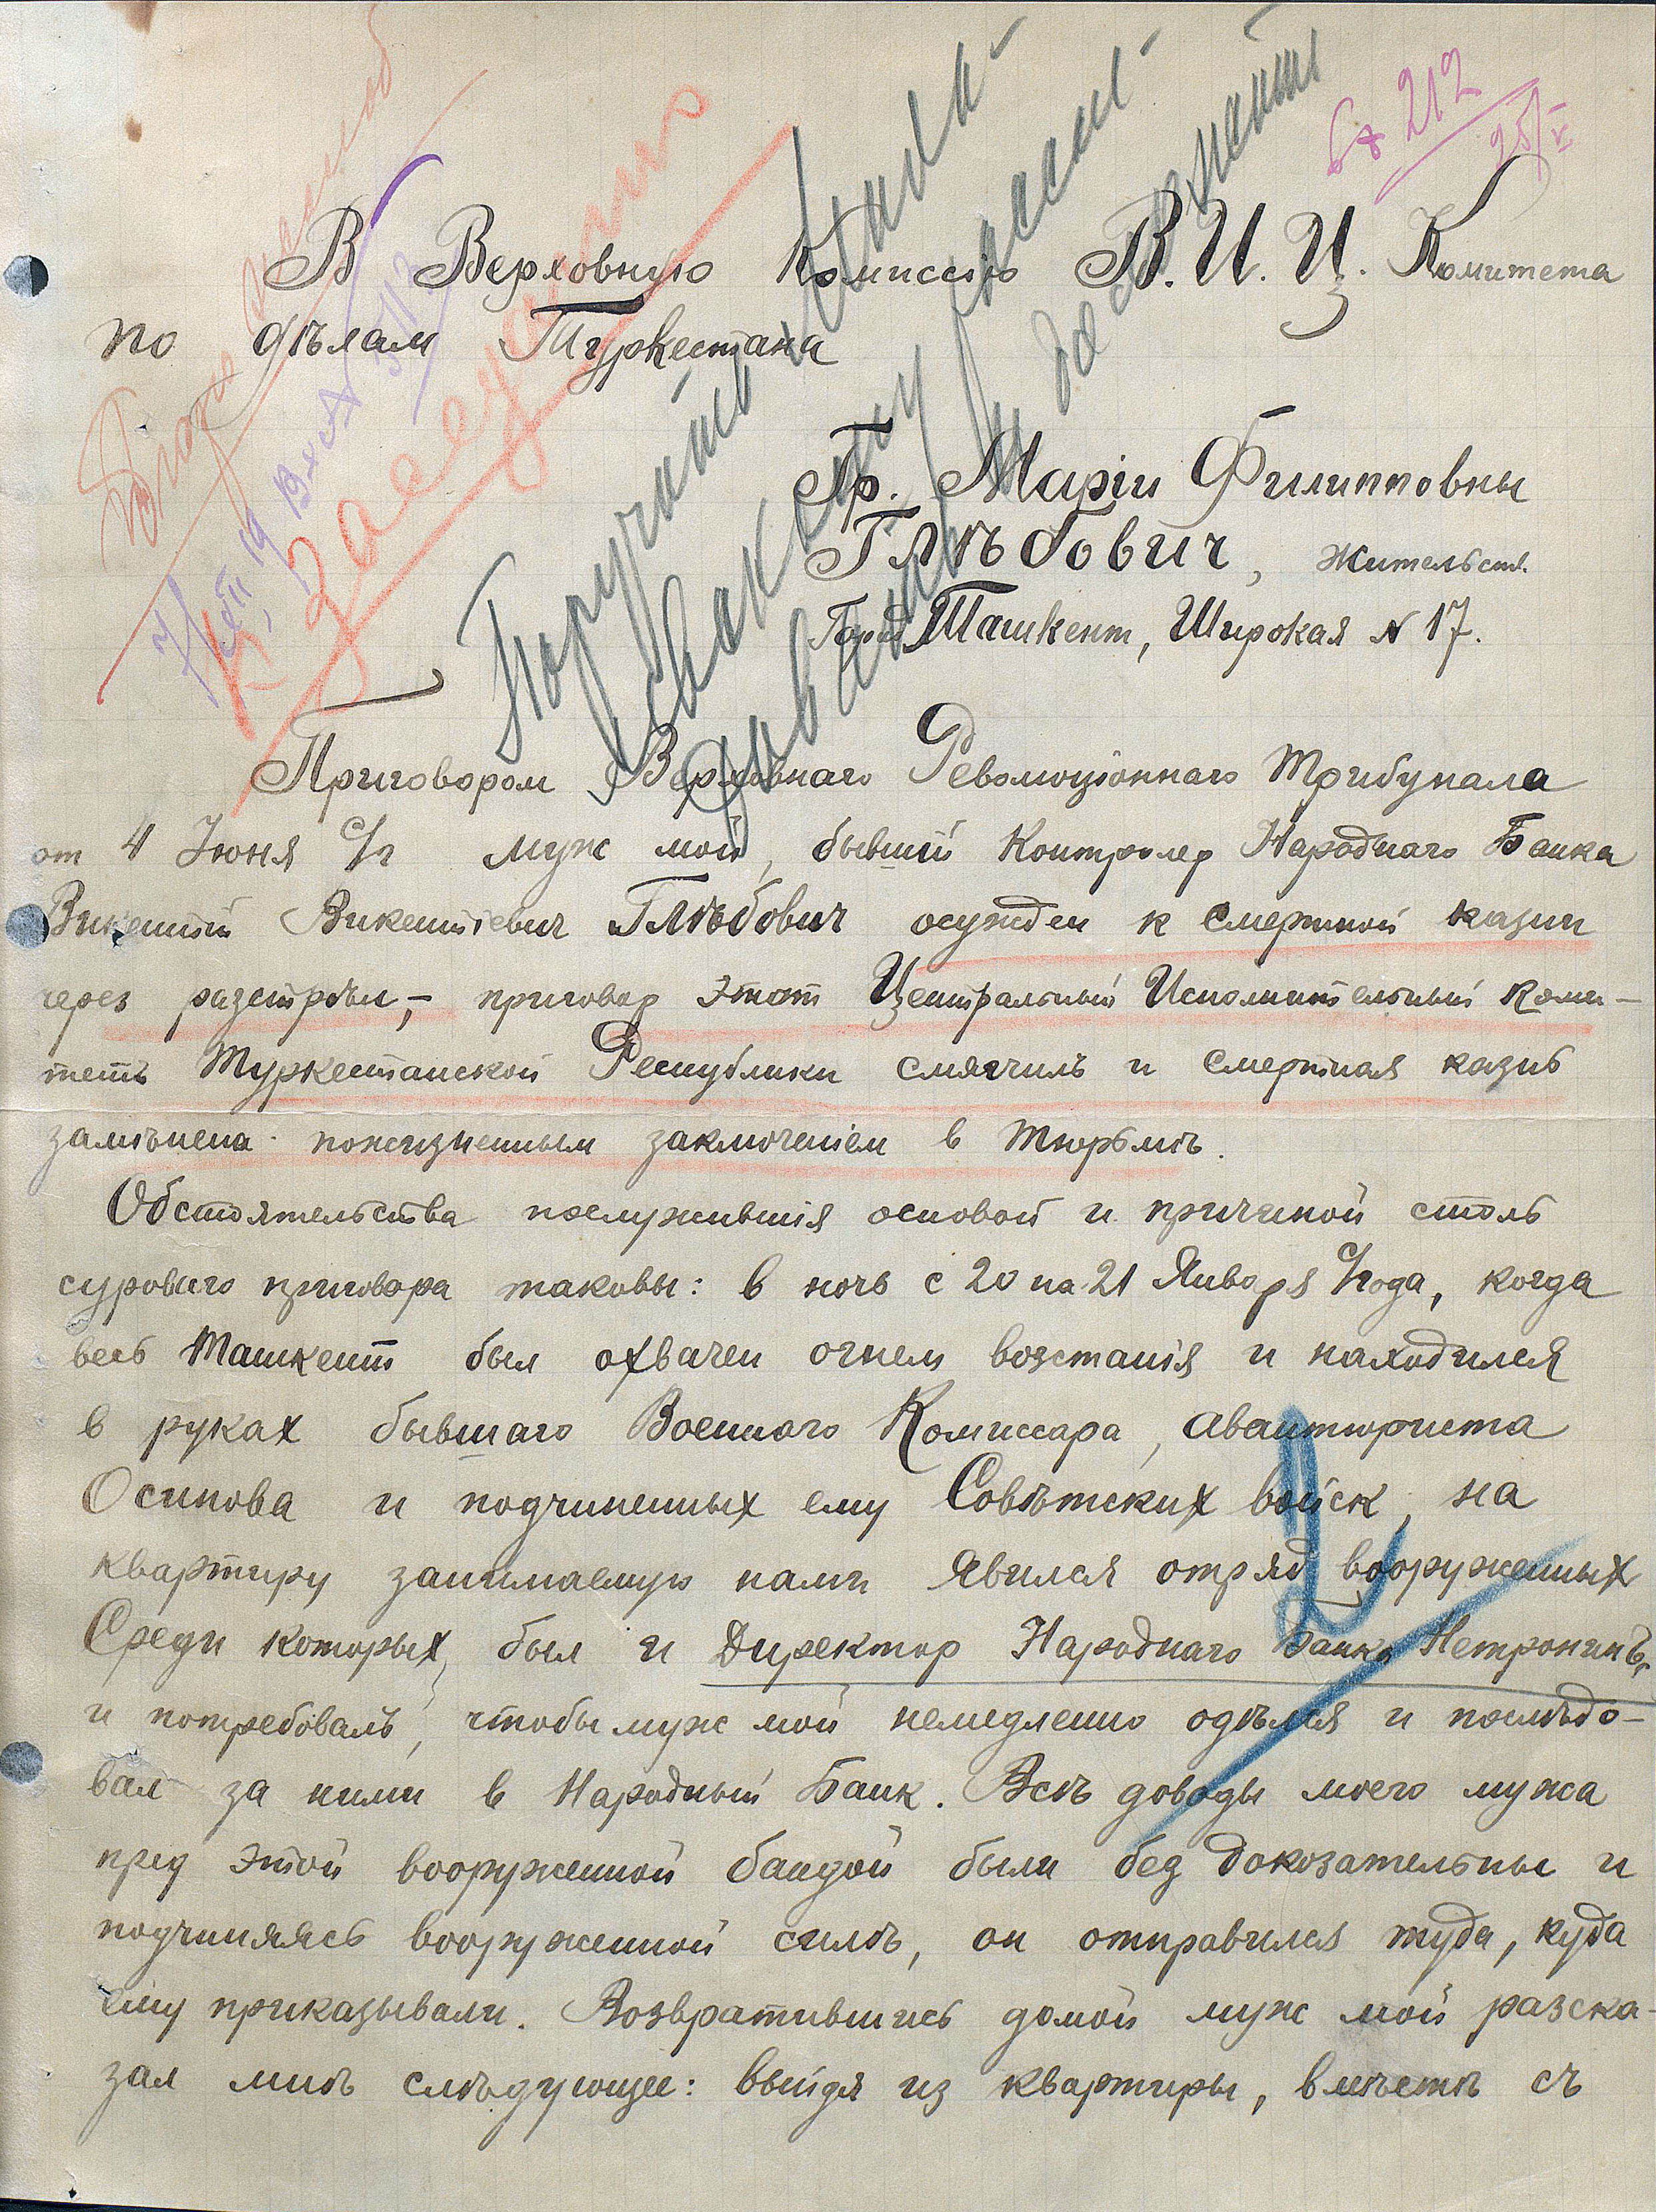 Вх 212
25/X
В Верховную Комиссію В. И. Ц. Комитета
по дѣлам Туркестана
Гр. Маріи Филипповны
Глѣбович, жительств.
Город Ташкент, Широкая № 17.
К заседанию
Поручить
Приговором Верховнаго Революціоннаго Трибунала
от 4 Іюня с/г муж мой, бывшій Контролер Народнаго Банка
Викентій Викентіевич Глѣбович осужден к смертной казни
через разстрѣл, – приговор этот Центральный Исполнительный Коми-
тетъ Туркестанской Республики смягчилъ и смертная казнь
замѣнена пожизненным заключеніем в тюрьмѣ.
Обстоятельства послужившія основой и причиной столь
суроваго приговора таковы: в ночь с 20 на 21 Января с/года, когда
весь Ташкент был охвачен огнем возстанія и находился
в руках бывшаго Военнаго Комиссара, авантюриста
Осипова и подчиненных ему Совѣтских войск, на
квартиру занимаемую нами явился отряд вооруженных
Среди которых, был и Директор Народнаго Банка
и потребовалъ, чтобы муж мой немедленно одѣлся и послѣдо-
вал за ними в Народный Банк. Всѣ доводы моего мужа
пред этой вооруженной бандой были без доказательны и
подчиняясь вооруженной силѣ, он отправился туда, куда
ему приказывали. Возвратившись домой муж мой разска-
зал мнѣ слѣдующее: выйдя из квартиры, вмѣстѣ съ